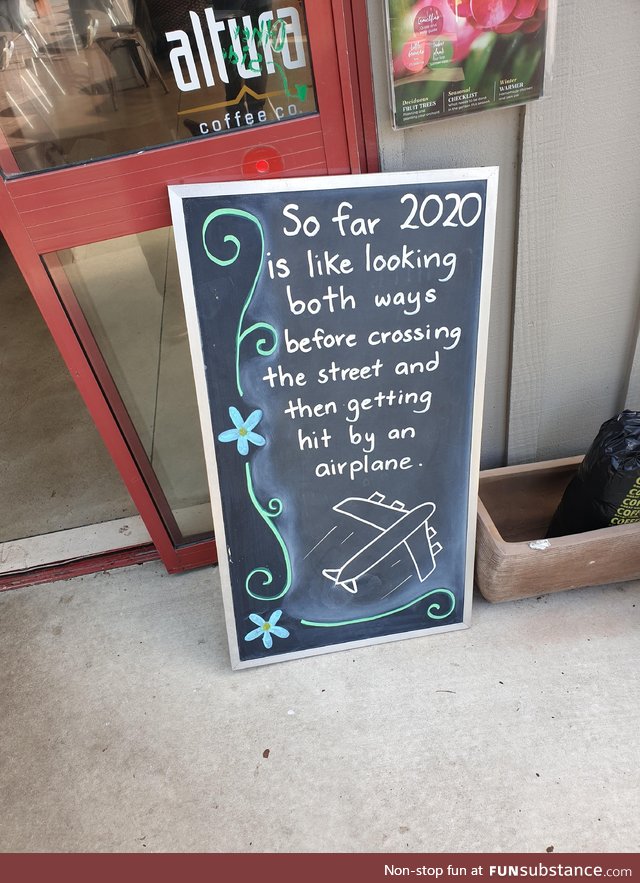 altura
coffee co.
Deciduous
FRUIT TREES
Seasonal
CHECKLIST
Winter
WARMER
So far 2020
is like looking
both ways
before crossing
the street and
then getting
hit by an
airplane.
Non-stop fun at FUNsubstance.com